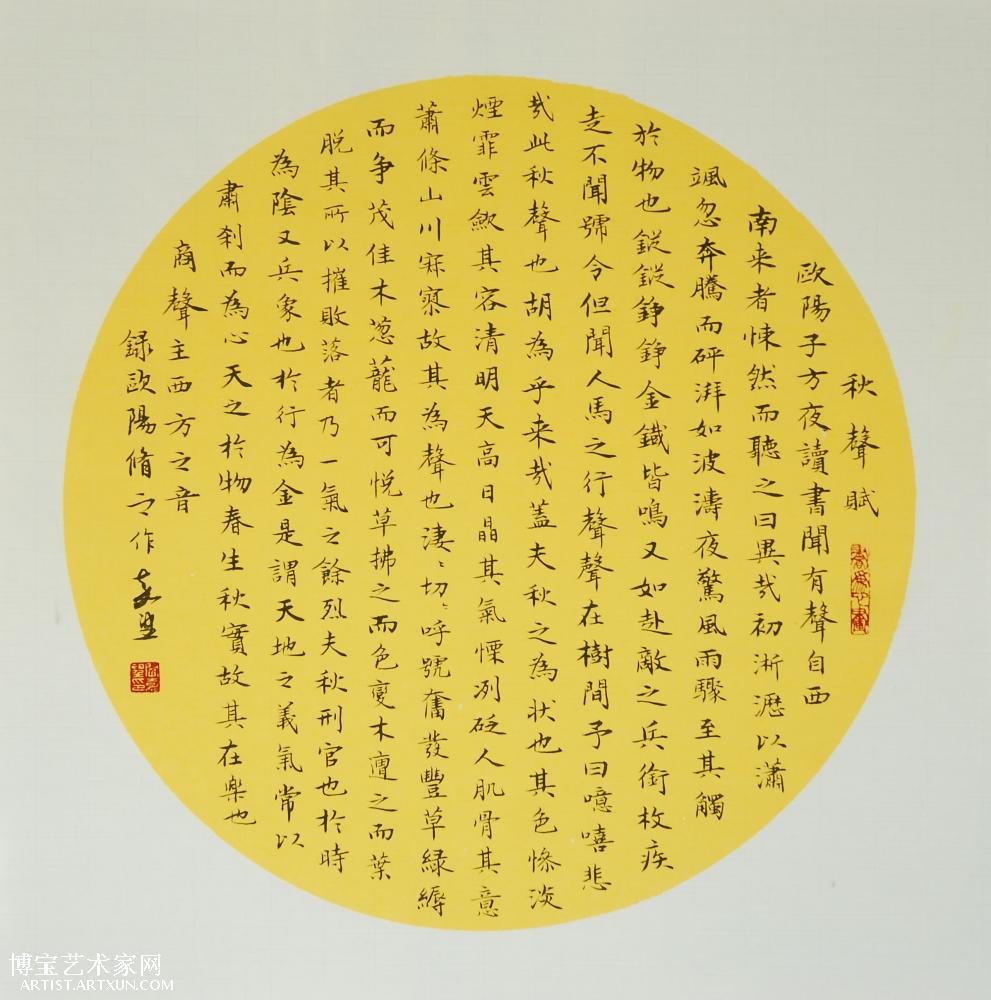 秋聲賦
歐陽子方夜讀書聞有聲自西
南来者悚然而聽之曰異哉初淅瀝以瀟
颯忽奔騰而砰湃如波濤夜驚風雨驟至其觸
於物也鏦鏦錚錚金鐵皆鳴又如赴敵之兵銜枚疾
走不聞號令但聞人馬之行聲聲在樹間予曰噫嘻悲
哉此秋聲也胡為乎来哉蓋夫秋之為状也其色慘淡
煙霏雲歛其容清明天高日晶其氣慄冽砭人肌骨其意
蕭條山川寂寥故其為聲也淒〻切〻呼號奮發豐草緑縟
而争茂佳木葱蘢而可悦草拂之而色變木遭之而葉
脱其所以摧敗落者乃一氣之餘烈夫秋刑官也於時
為陰又兵象也於行為金是謂天地之義氣常以
肅刹而為心天之於物春生秋實故其在樂也
商聲主西方之音
録歐陽脩之作
博宝艺术家网
ARTIST.ARTXUN.COM